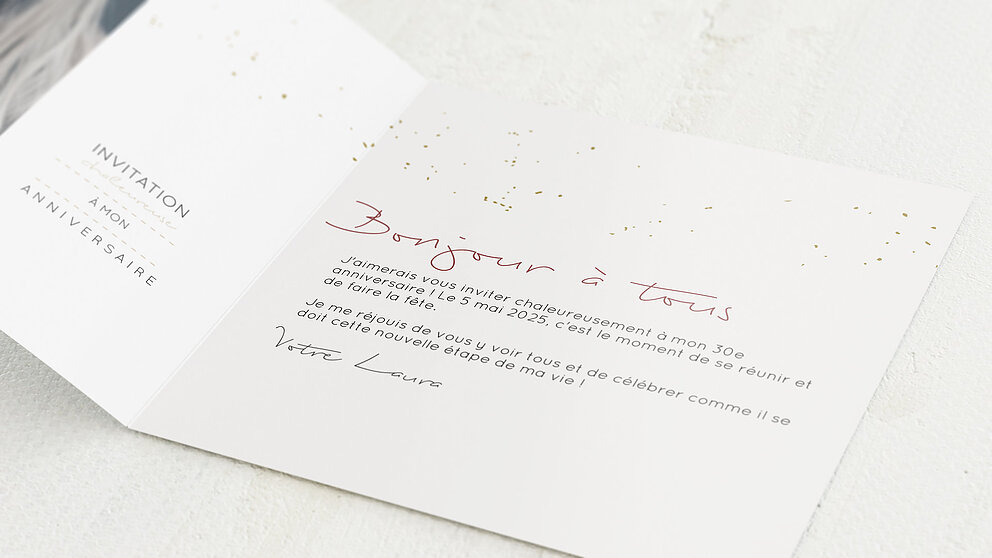 INVITATION
chaleureuse
À MON
ANNIVERSAIRE
Bonjour à tous
J'aimerais vous inviter chaleureusement à mon 30e
anniversaire ! Le 5 mai 2025, c'est le moment de se réunir et
de faire la fête.
Je me réjouis de vous y voir tous et de célébrer comme il se
doit cette nouvelle étape de ma vie !
Votre Laura